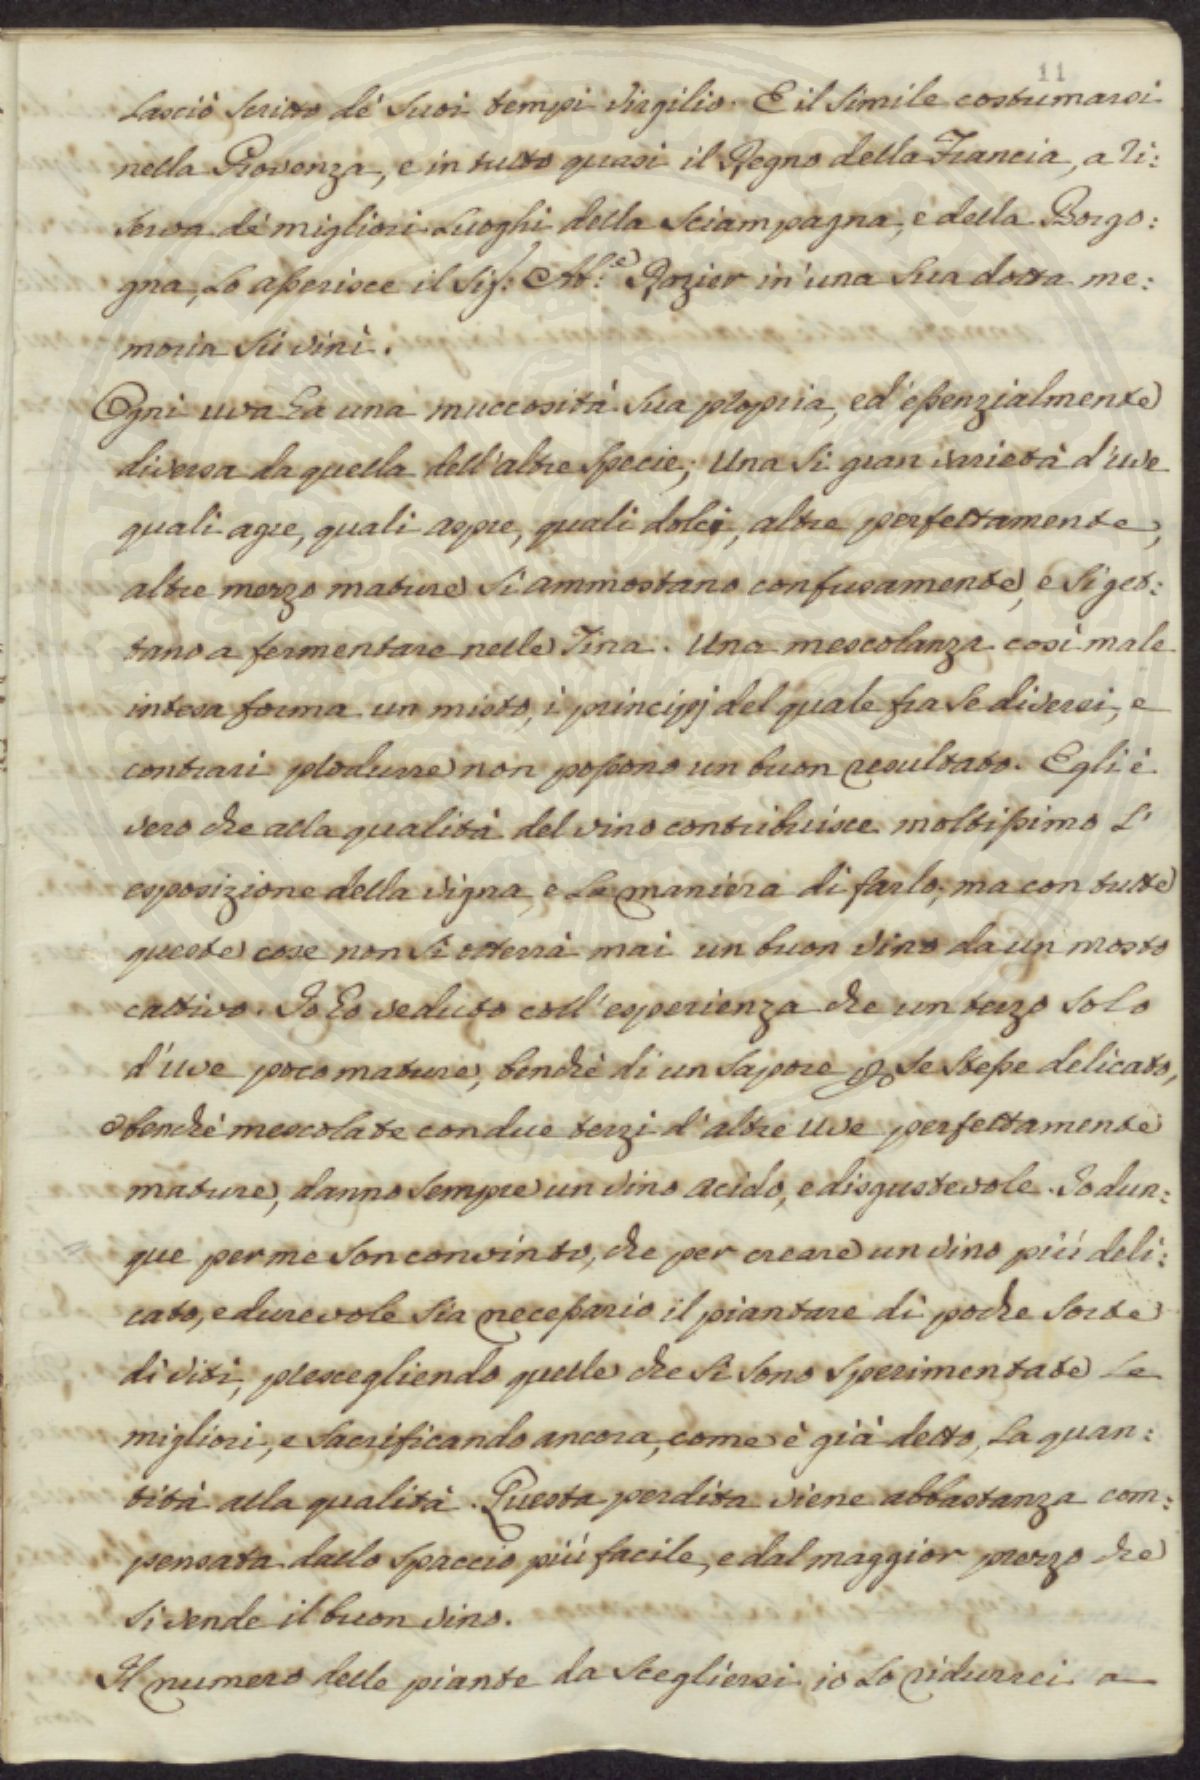 11
lasciò scritto de' suoi tempi Virgilio. E il simile costumarsi
nella Provenza, e in tutto quasi il Regno della Francia, a ri:
serva de' migliori luoghi della Sciampagna, e della Borgo:
gna, lo asserisce il Sig.r Ab.te Rozier in una sua dotta me:
moria sù i vini.
Ogni uva ha una muccosità sua propria, ed' essenzialmente
diversa da quella dell'altre specie; Una si gran varietà d'uve
quali agre, quali aspre, quali dolci, altre perfettamente,
altre mezzo mature si ammostano confusamente, e si get:
tano a fermentare nelle Tina. Una mescolanza così male
intesa forma un misto, i principj del quale fra se diversi, e
contrari produrre non possono un buon resultato. Egli è
vero che alla qualità del vino contribuisce moltissimo l'
esposizione della vigna, e la maniera di farlo; ma con tutte
queste cose non si otterrà mai un buon vino da un mosto
cattivo. Io ho veduto coll'esperienza che un terzo solo
d'uve poco mature, benchè di un sapore per se stesse delicato,
e benchè mescolate con due terzi d'altre uve perfettamente
mature, danno sempre un vino acido, e disgustevole. Io dun:
que per me son convinto, che per creare un vino più deli:
cato, e durevole sia necessario il piantare di poche sorte
di viti, prescegliendo quelle che si sono sperimentate le
migliori, e sacrificando ancora, come è già detto, la quan:
tità alla qualità. Questa perdita viene abbastanza com:
pensata dallo spaccio più facile, e dal maggior prezzo che
si vende il buon vino.
Il numero delle piante da scegliersi io lo ridurrei a